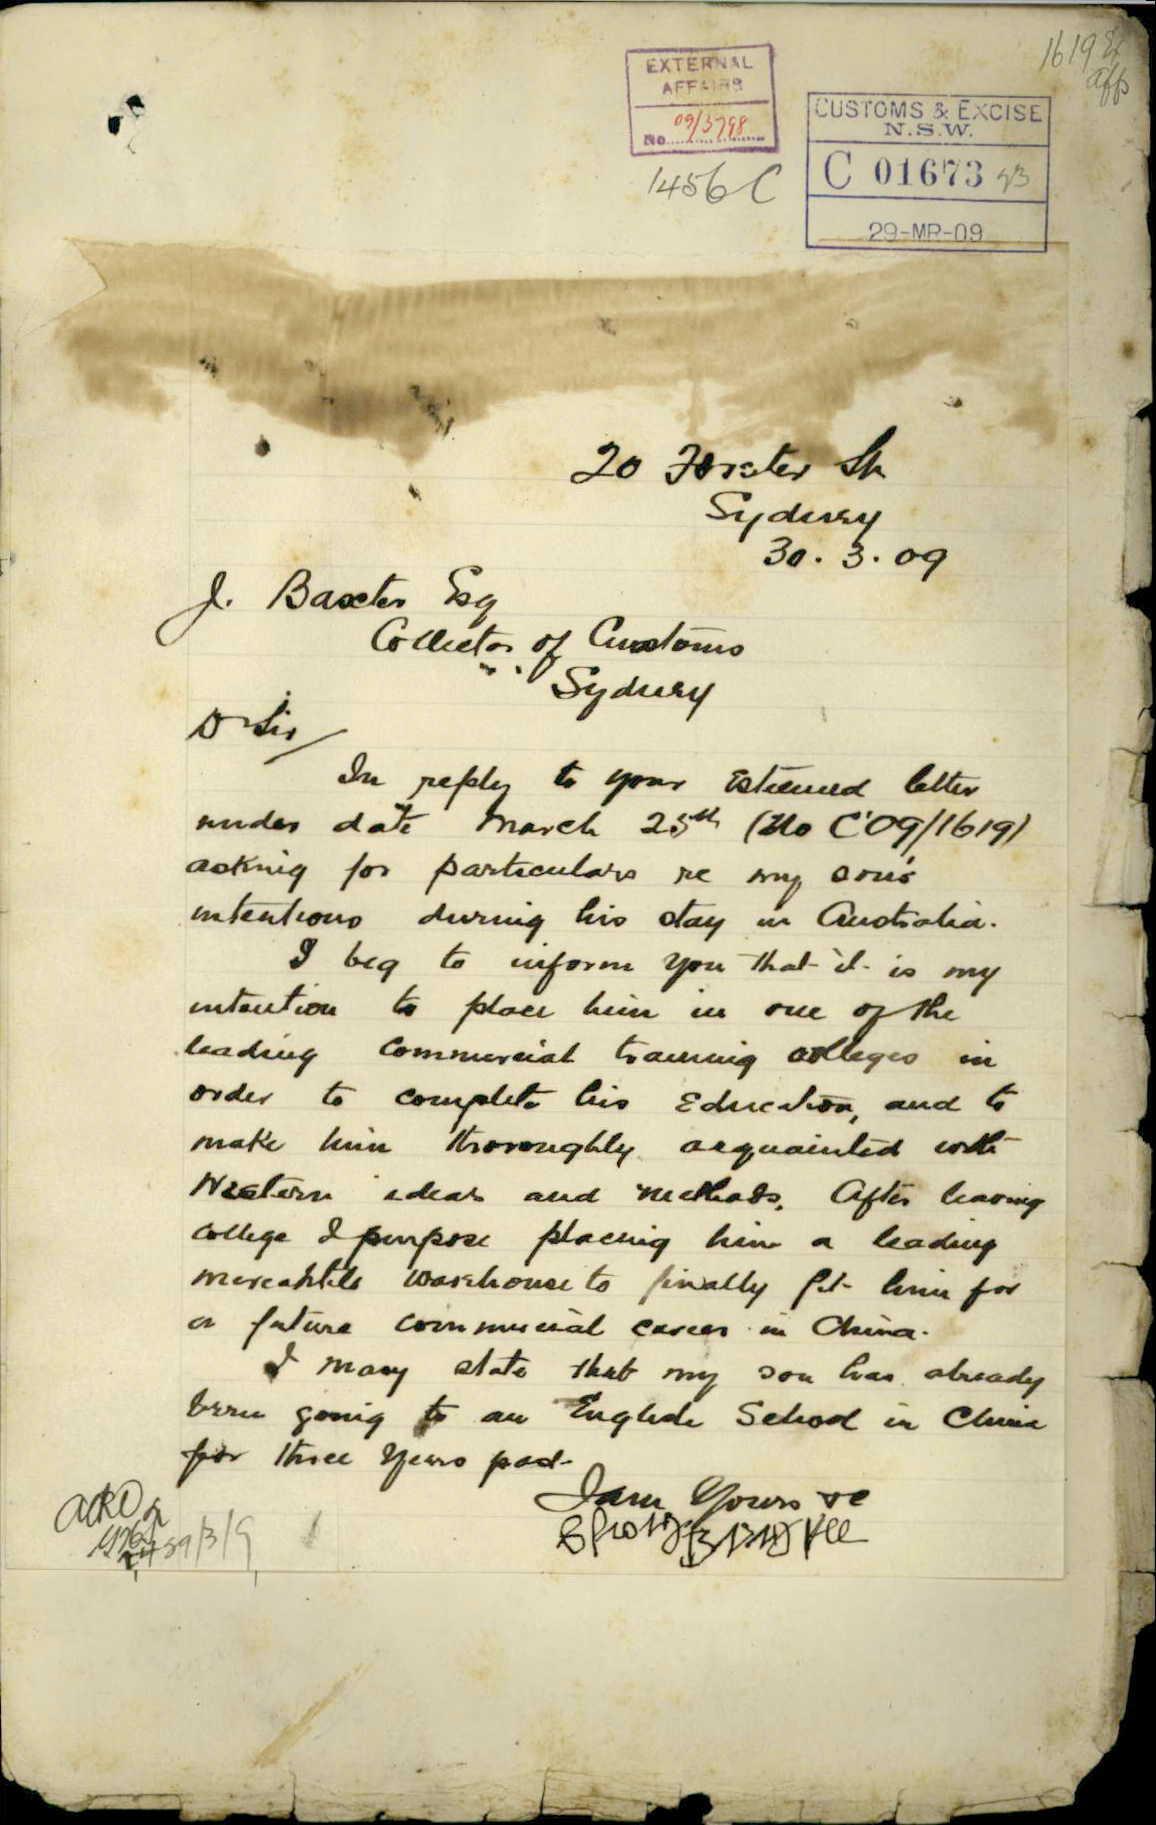 1619
EXTERNAL
AFFAIRS
No. 09/3798
1456 C
CUSTOMS & EXCISE
N.S.W.
C 01673
29-MR-09
20 Forster St
Sydney
30. 3. 09
J. Baxter Esq
Collector of Customs
Sydney
D Sir
In reply to your Esteemed letter
under date March 25th (No C'09/1619)
asking for particulars re my son's
intentions during his stay in Australia.
I beg to inform you that it is my
intention to place him in one of the
leading Commercial training colleges in
order to complete his Education, and to
make him thoroughly acquainted with
Western ideas and methods. After leaving
College I purpose placing him a leading
mercantile warehouse to finally fit him for
a future commercial career in China.
I may state that my son has already
been going to an English School in China
for three years past
I am Yours